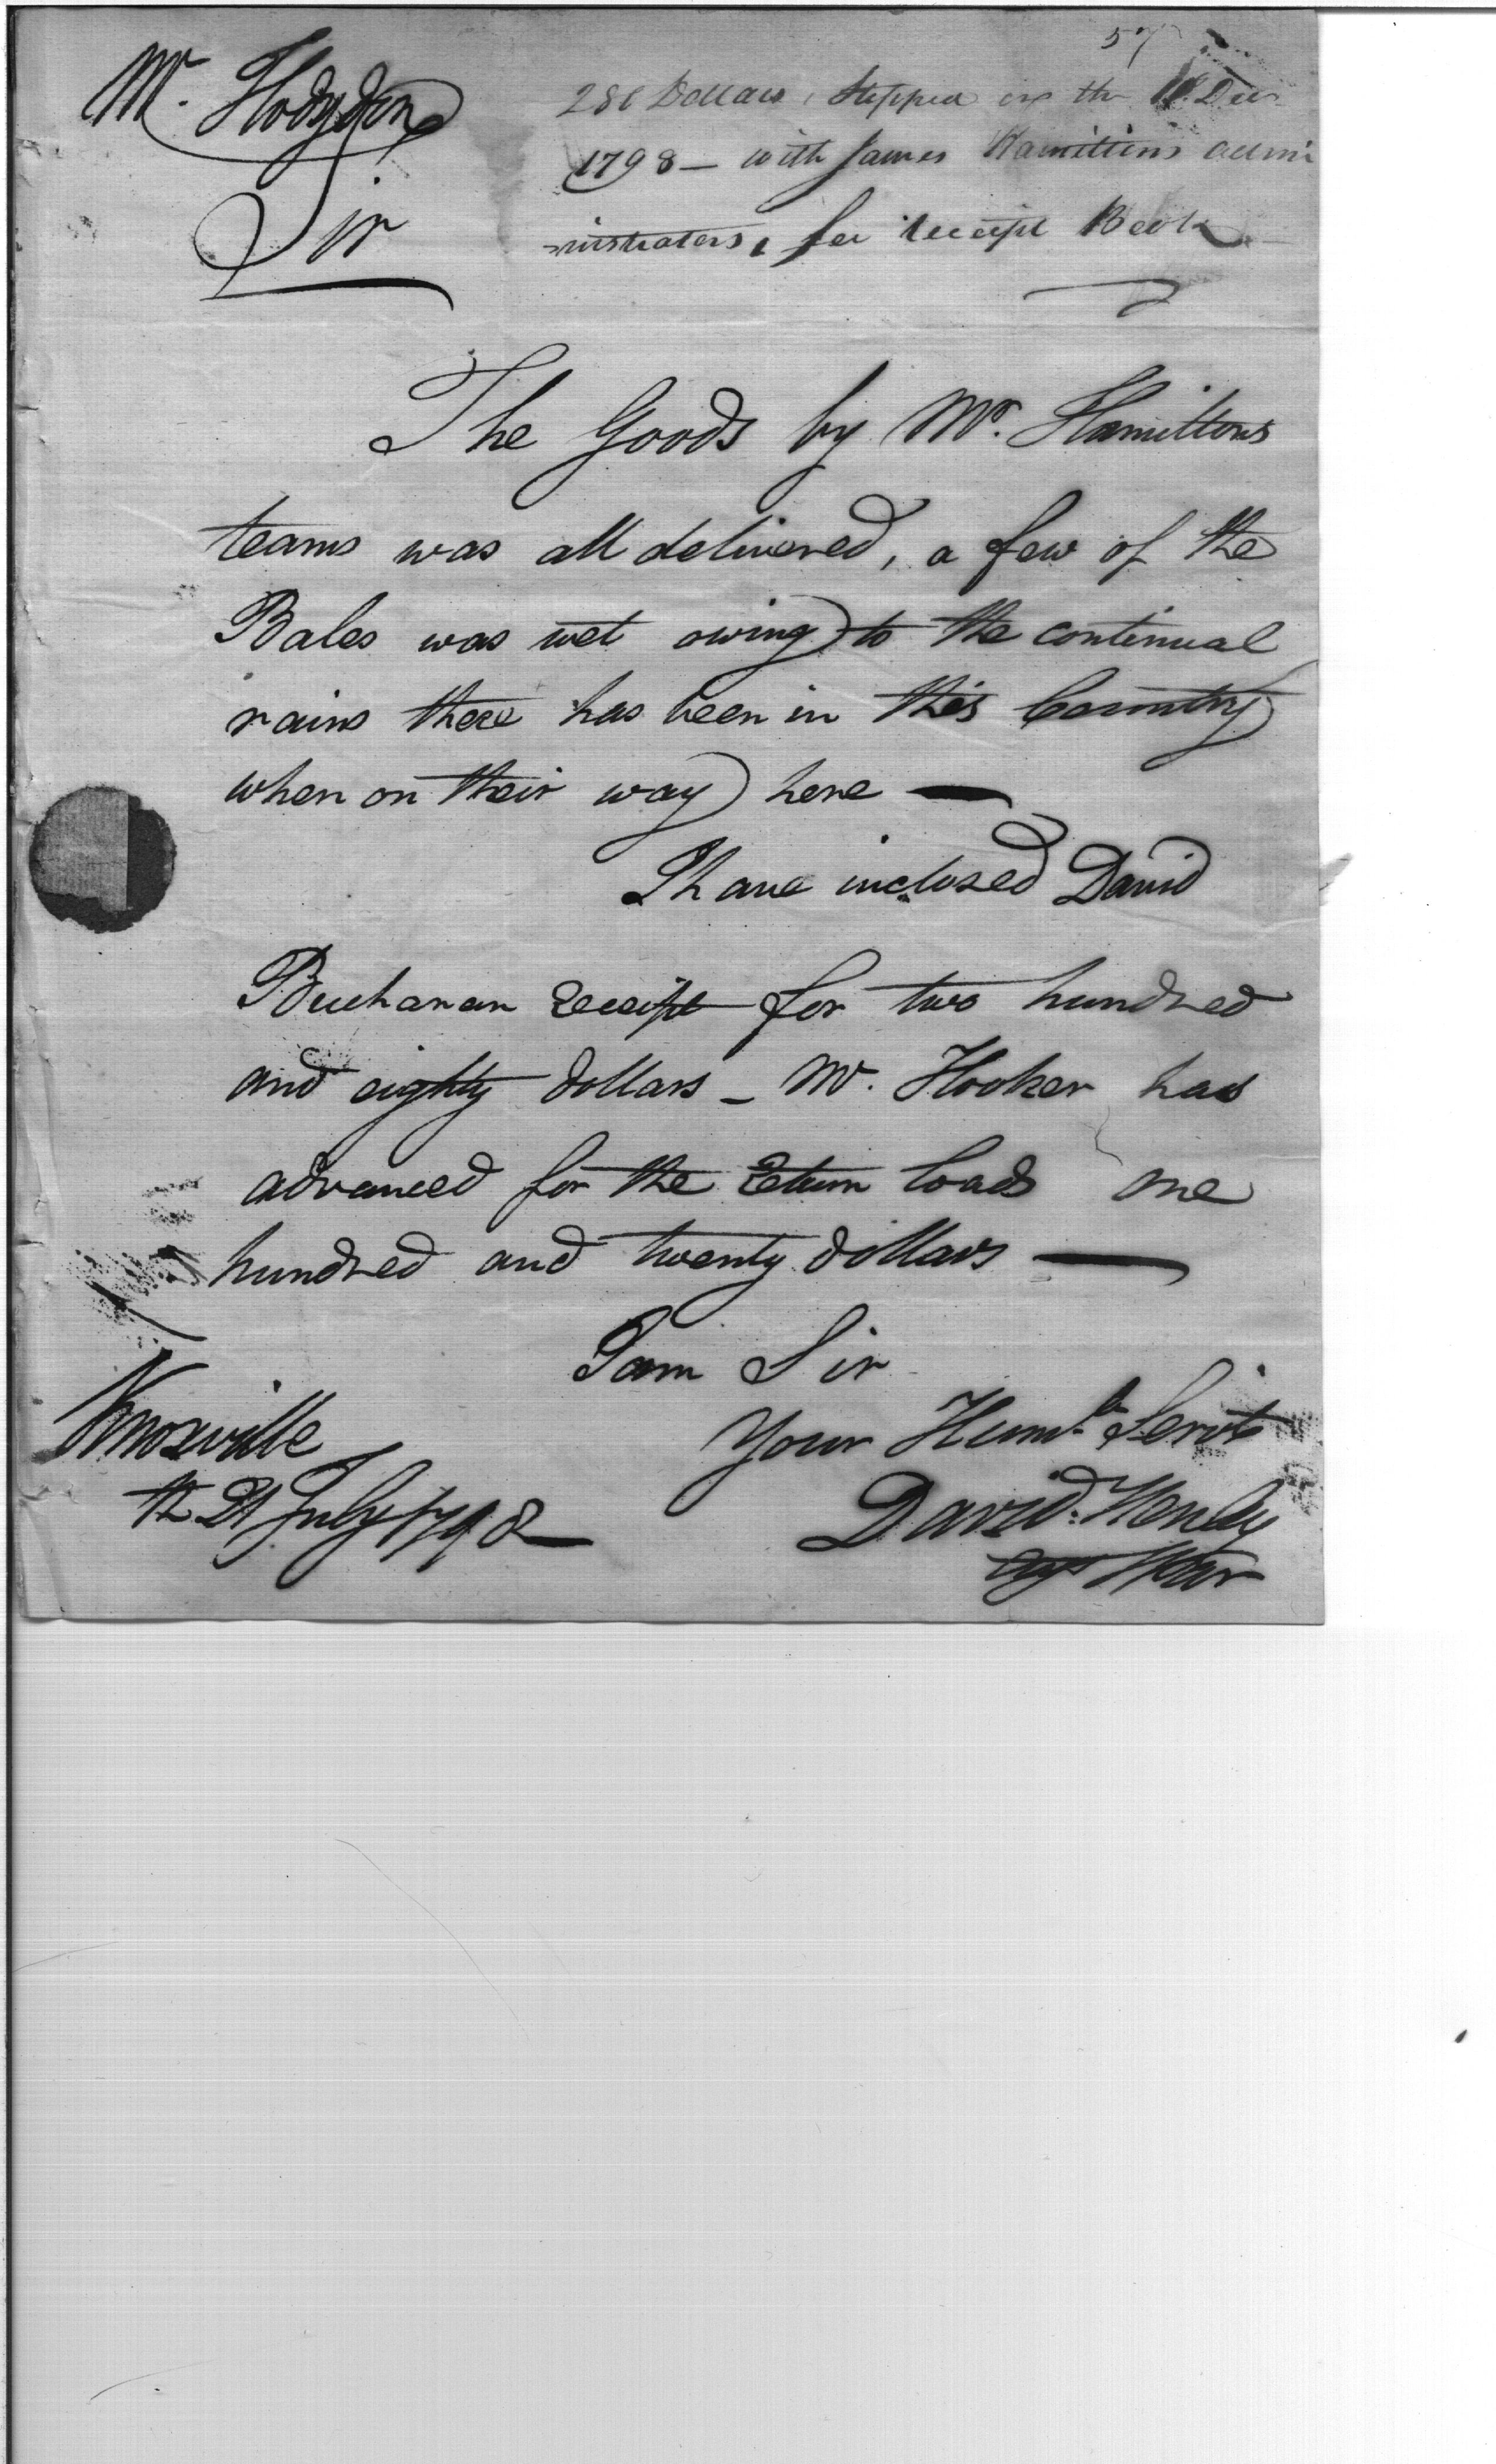 57
Mr. Hodgdon
Sir
280 Dollars, stopped on the 10 Decr
1798 — with James Hamiltons admi
nistrators, for receipt Book
The Goods by Mr. Hamiltons
teams was all delivered, a few of the
Bales was wet owing to the continual
rains there has been in this Country
when on their way here —
I have inclosed David
Buchanan Receipt for two hundred
and eighty dollars – Mr. Hooker has
advanced for the Return loads one
hundred and twenty dollars —
I am Sir
Your Humle Servt
David Henley
agt War
Knoxville
th 21 July 1798 —